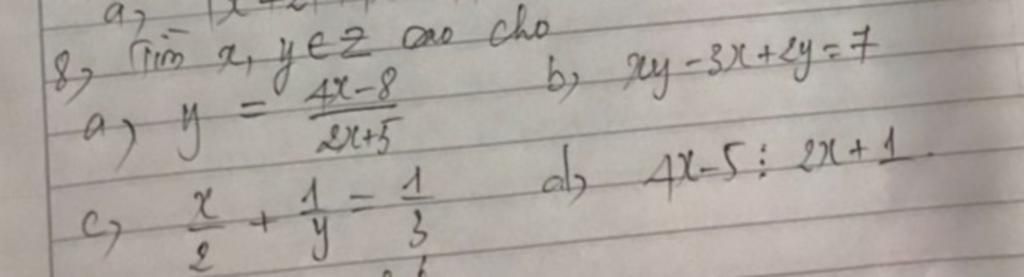 8, Tìm x, y ∈ Z sao cho
a, y = (4x-8)/(2x+5) b, xy - 3x + 2y = 7
c, x/2 + 1/y = 1/3 d, 4x-5 ⋮ 2x+1